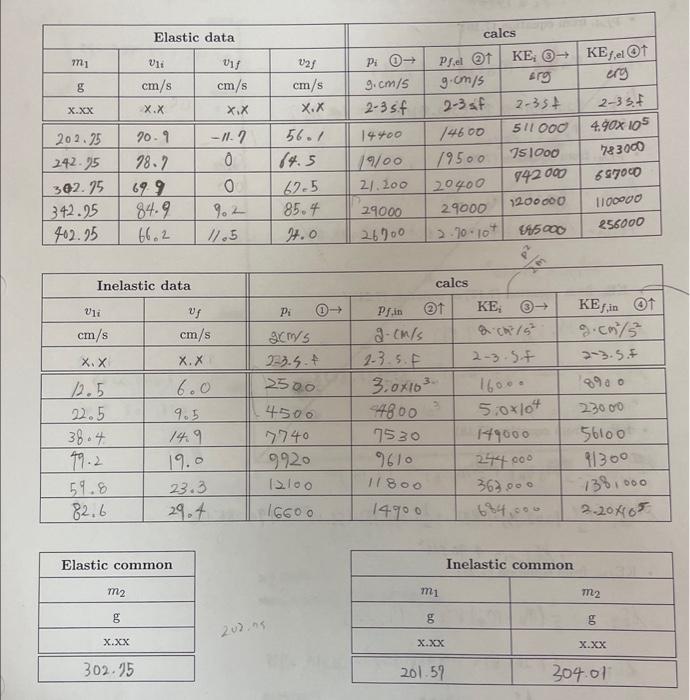 Elastic data calcs
m1 v1i v1f v2f pi ①→ pf,el ②↑ KEi ③→ KEf,el ④↑
g cm/s cm/s cm/s g.cm/s g.cm/s erg erg
x.xx x.x x.x x.x 2-3 s.f 2-3 sf 2-3 s f 2-3 s.f
202.95 70.9 -11.7 56.1 14400 14600 511000 4.90x10⁵
242.95 78.7 0 64.5 19100 19500 751000 783000
302.95 69.9 0 67.5 21,200 20400 742000 687000
342.95 84.9 9.2 85.4 29000 29000 1200000 1100000
402.95 66.2 11.5 26700 2.70·10⁴ 856000
p²/2m
Inelastic data calcs
v1i vf pi ①→ pf,in ②↑ KEi ③→ KEf,in ④↑
cm/s cm/s gcm/s g·cm/s g·cm²/s² g·cm²/s²
x.x x.x 2-3.s.f 2-3 s.F 2-3.s.f 2-3.s.f
12.5 6.0 2500 3.0x10³ 16000 8900
22.5 9.5 4500 4800 5.0x10⁴ 23000
38.4 14.9 7740 7530 149000 56100
49.2 19.0 9920 9610 244000 91300
59.8 23.3 12100 11800 363,000 138,000
82.6 29.4 16600 14900 684,000 2.20x10⁵
Elastic common Inelastic common
m2 m1 m2
g g g
x.xx x.xx x.xx
302.95 201.59 304.01